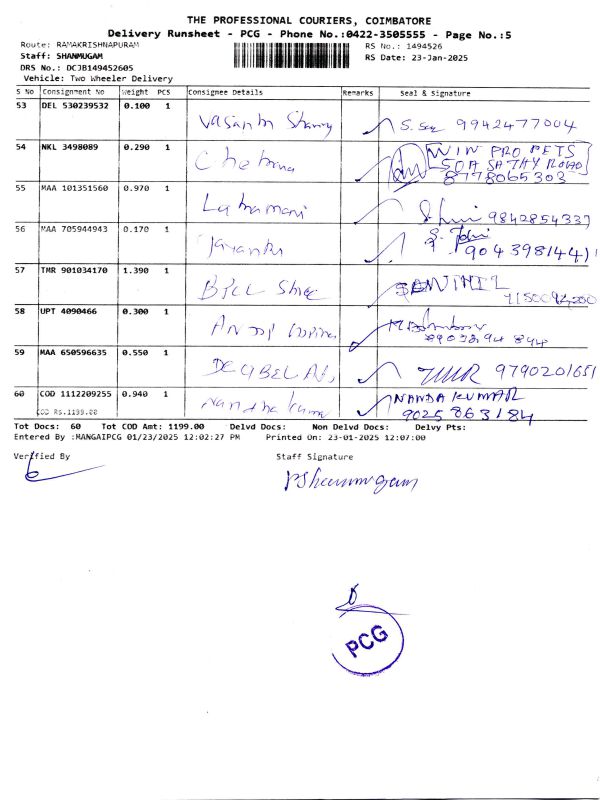 THE PROFESSIONAL COURIERS, COIMBATORE
Delivery Runsheet - PCG - Phone No.:0422-3505555 - Page No.:5
Route: RAMAKRISHNAPURAM
RS No.: 1494526
Staff: SHANMUGAM
RS Date: 23-Jan-2025
DRS No.: DCJB149452605
Vehicle: Two Wheeler Delivery
S No Consignment No Weight PCS Consignee Details Remarks Seal & Signature
53 DEL 530239532 0.100 1 9942477004
54 NKL 3498089 0.290 1 Chetana WIN PRO PETS
50A SATHY ROAD
8778065303
55 MAA 101351560 0.970 1 9842854337
56 MAA 705944943 0.170 1
57 TMR 901034170 1.390 1
58 UPT 4090466 0.300 1
59 MAA 650596635 0.550 1 9790201651
60 COD 1112209255 0.940 1 Nandha Kumar NANDA KUMAR
COD RS.1199.00 9025863184
Tot Docs: 60 Tot COD Amt: 1199.00 Delvd Docs: Non Delvd Docs: Delvy Pts:
Entered By :MANGAIPCG 01/23/2025 12:02:27 PM Printed On: 23-01-2025 12:07:00
Verified By Staff Signature
PShanmugam
PCG